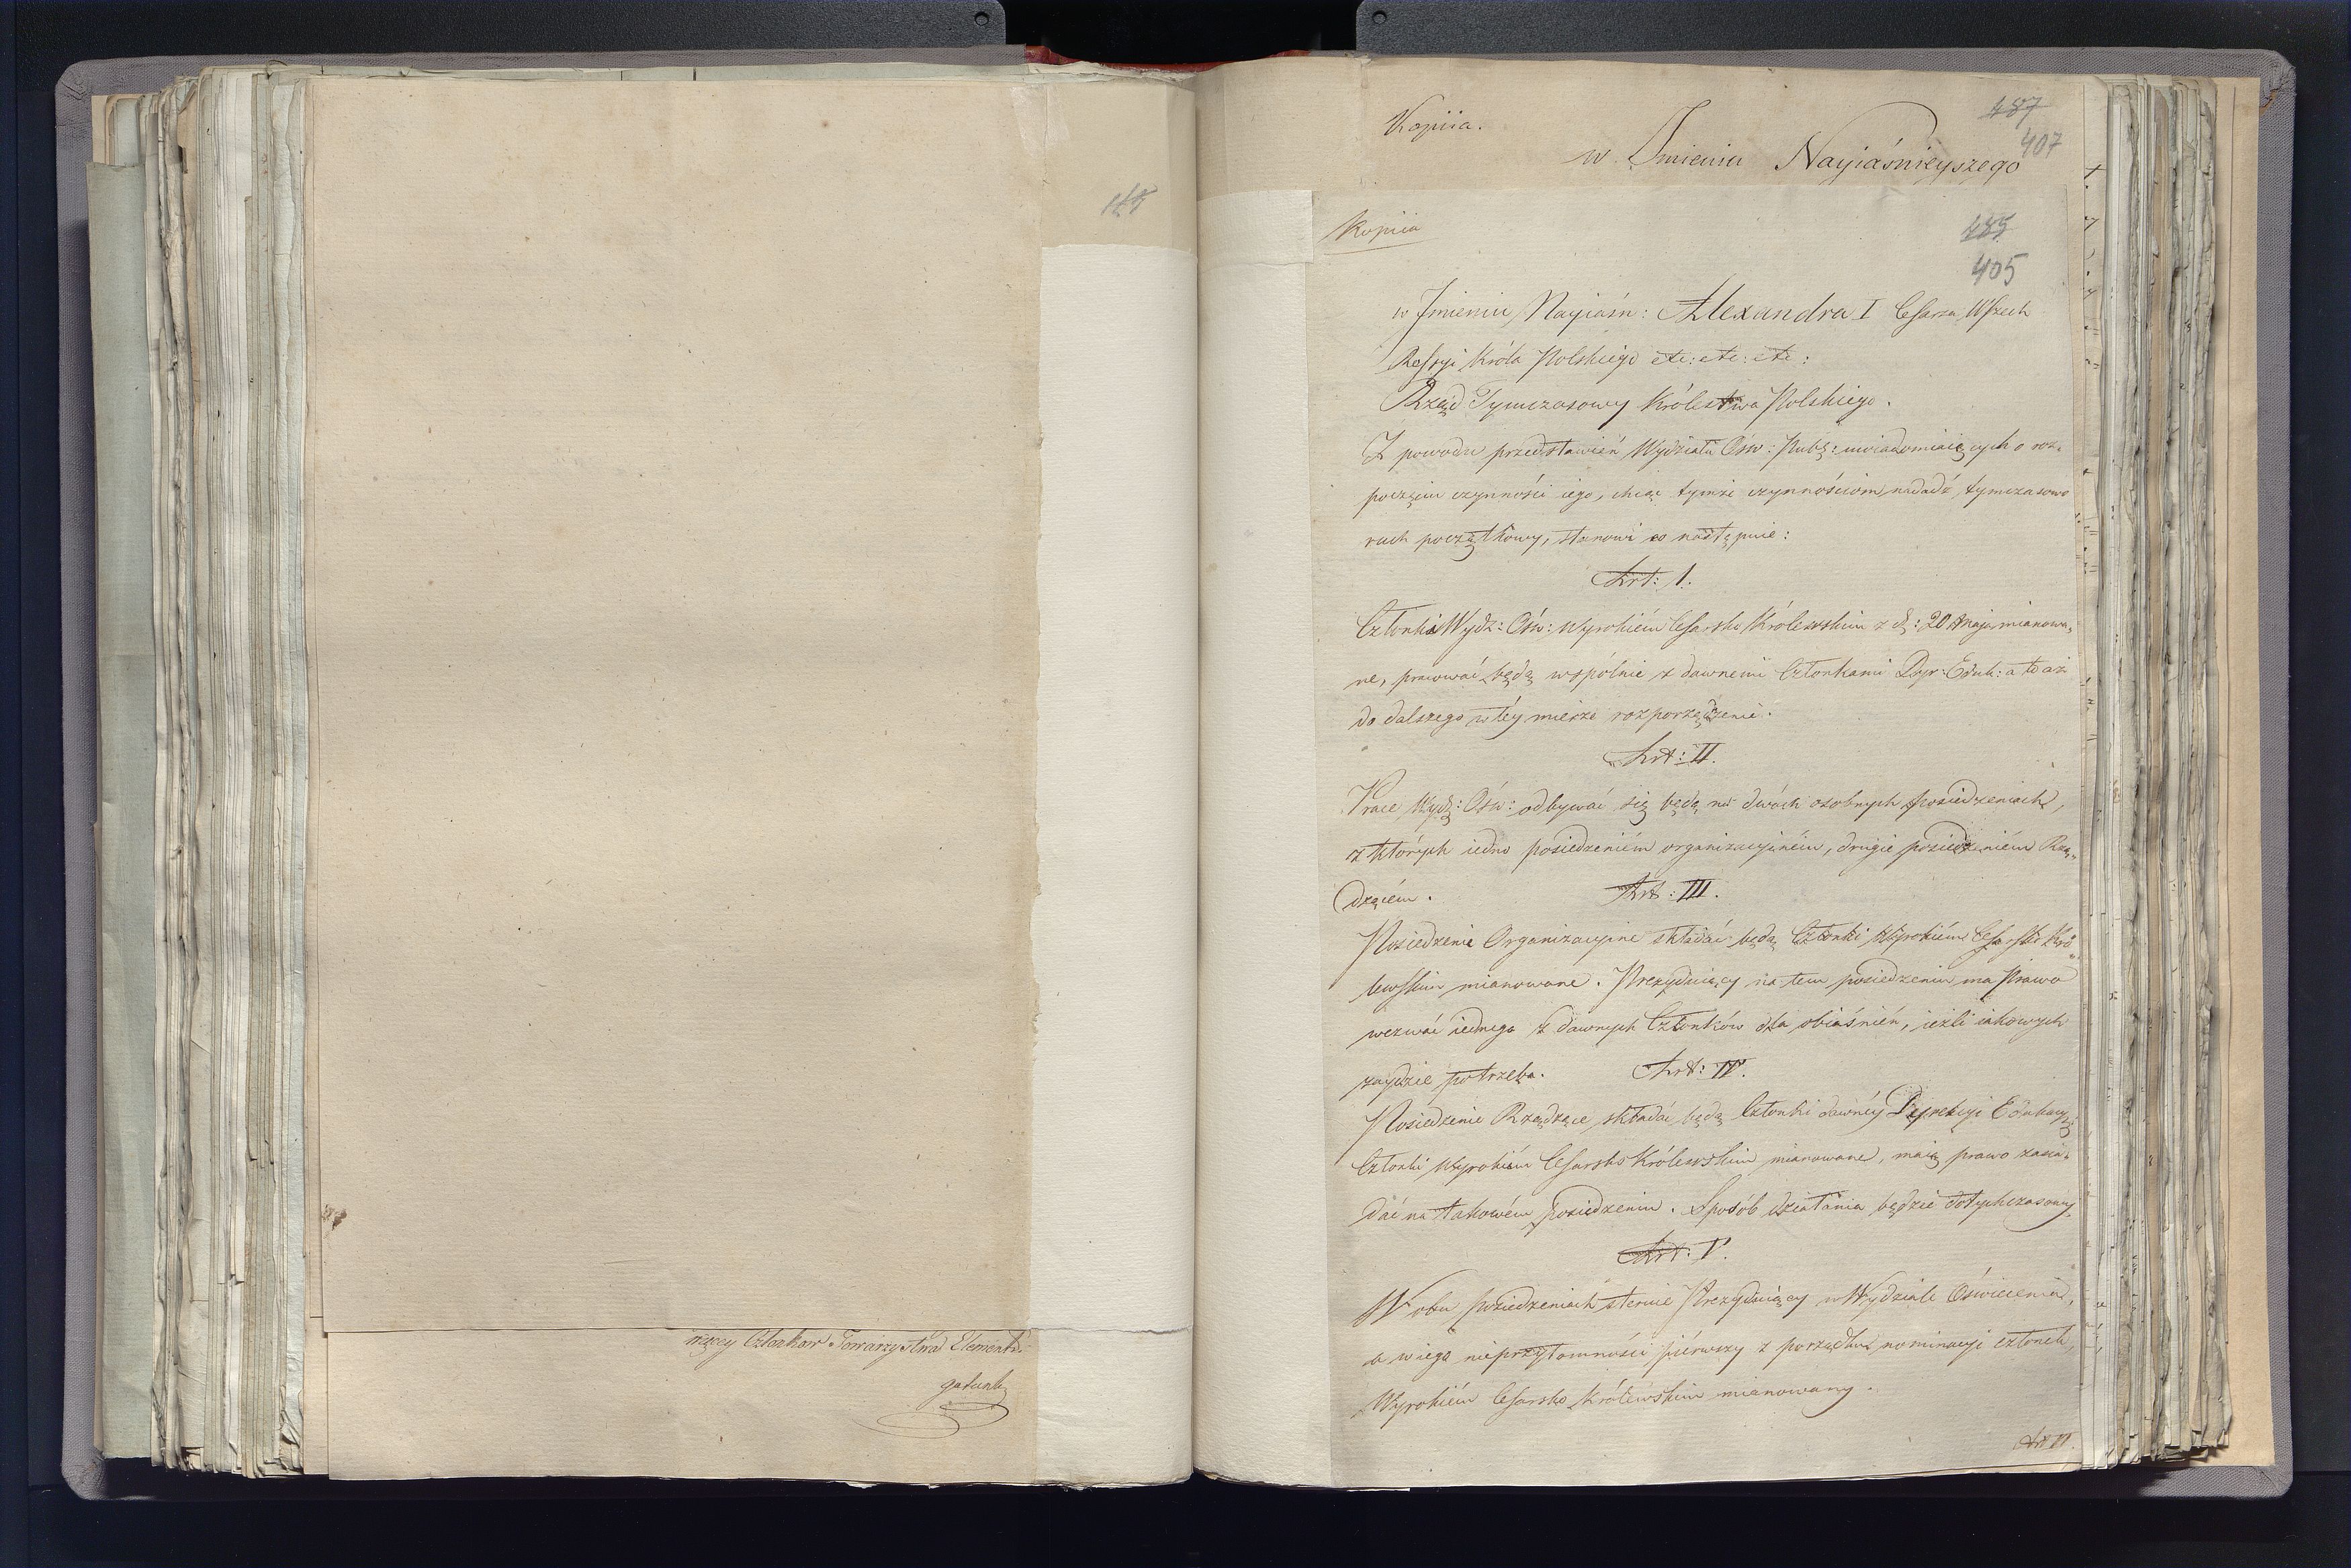 145
męcy Członkow Towarzystwa Elementar
gatunk
Kopiia.
487
407
w Imieniu Nayiaśnieyszego
Kopiia
485
405
w Imieniu Nayiaśn: Alexandra I Cesarza Wszech
Rossyi Króla Polskiego etc: etc: etc:
Rząd Tymczasowy Królestwa Polskiego.
Z powodu przedstawień Wydziału Ośw: Publ: uwiadomiaiących o roz-
poczęciu czynności iego, chcąc tymże czynnościom nadadź tymczasowo
ruch początkowy, stanowi co następuie:
Art: I.
Członki Wydz: Ośw: wyrokiém Cesarsko Królewskim z d: 20 Maja mianowa-
ne, pracować będą wspólnie z dawnemi Członkami Dyr: Eduk: a to aż
do dalszego w téy mierze rozporządzenia.
Art: II.
Prace Wydz: Ośw: odbywać się będą na dwóch osobnych posiedzeniach,
z których iedno posiedzeniém organizacyjném, drugie posiedzeniém Rzą-
dzącém.
Art: III.
Posiedzenie Organizacyine składać będą Członki Wyrokiém Cesarsko Kró-
lewskim mianowane. Prezyduiący na tem posiedzeniu ma Prawo
wezwać iednego z dawnych Członków dla obiaśnień, ieżli iakowych
zaydzie potrzeba.
Art: IV.
Posiedzenie Rządzące składać będą Członki dawnéy Dyrekcyi Edukacyi
Członki Wyrokiém Cesarsko Królewskim mianowane, maią prawo zasia-
dać na takowém posiedzeniu. Sposób działania będzie dotychczasowy
Art: V.
W obu posiedzeniach steruie Prezyduiący w Wydziale Oświecenia,
a w iego nieprzytomności piérwszy z porządku nominacyi członek,
Wyrokiém Cesarsko Królewskim mianowany.
Art VI.